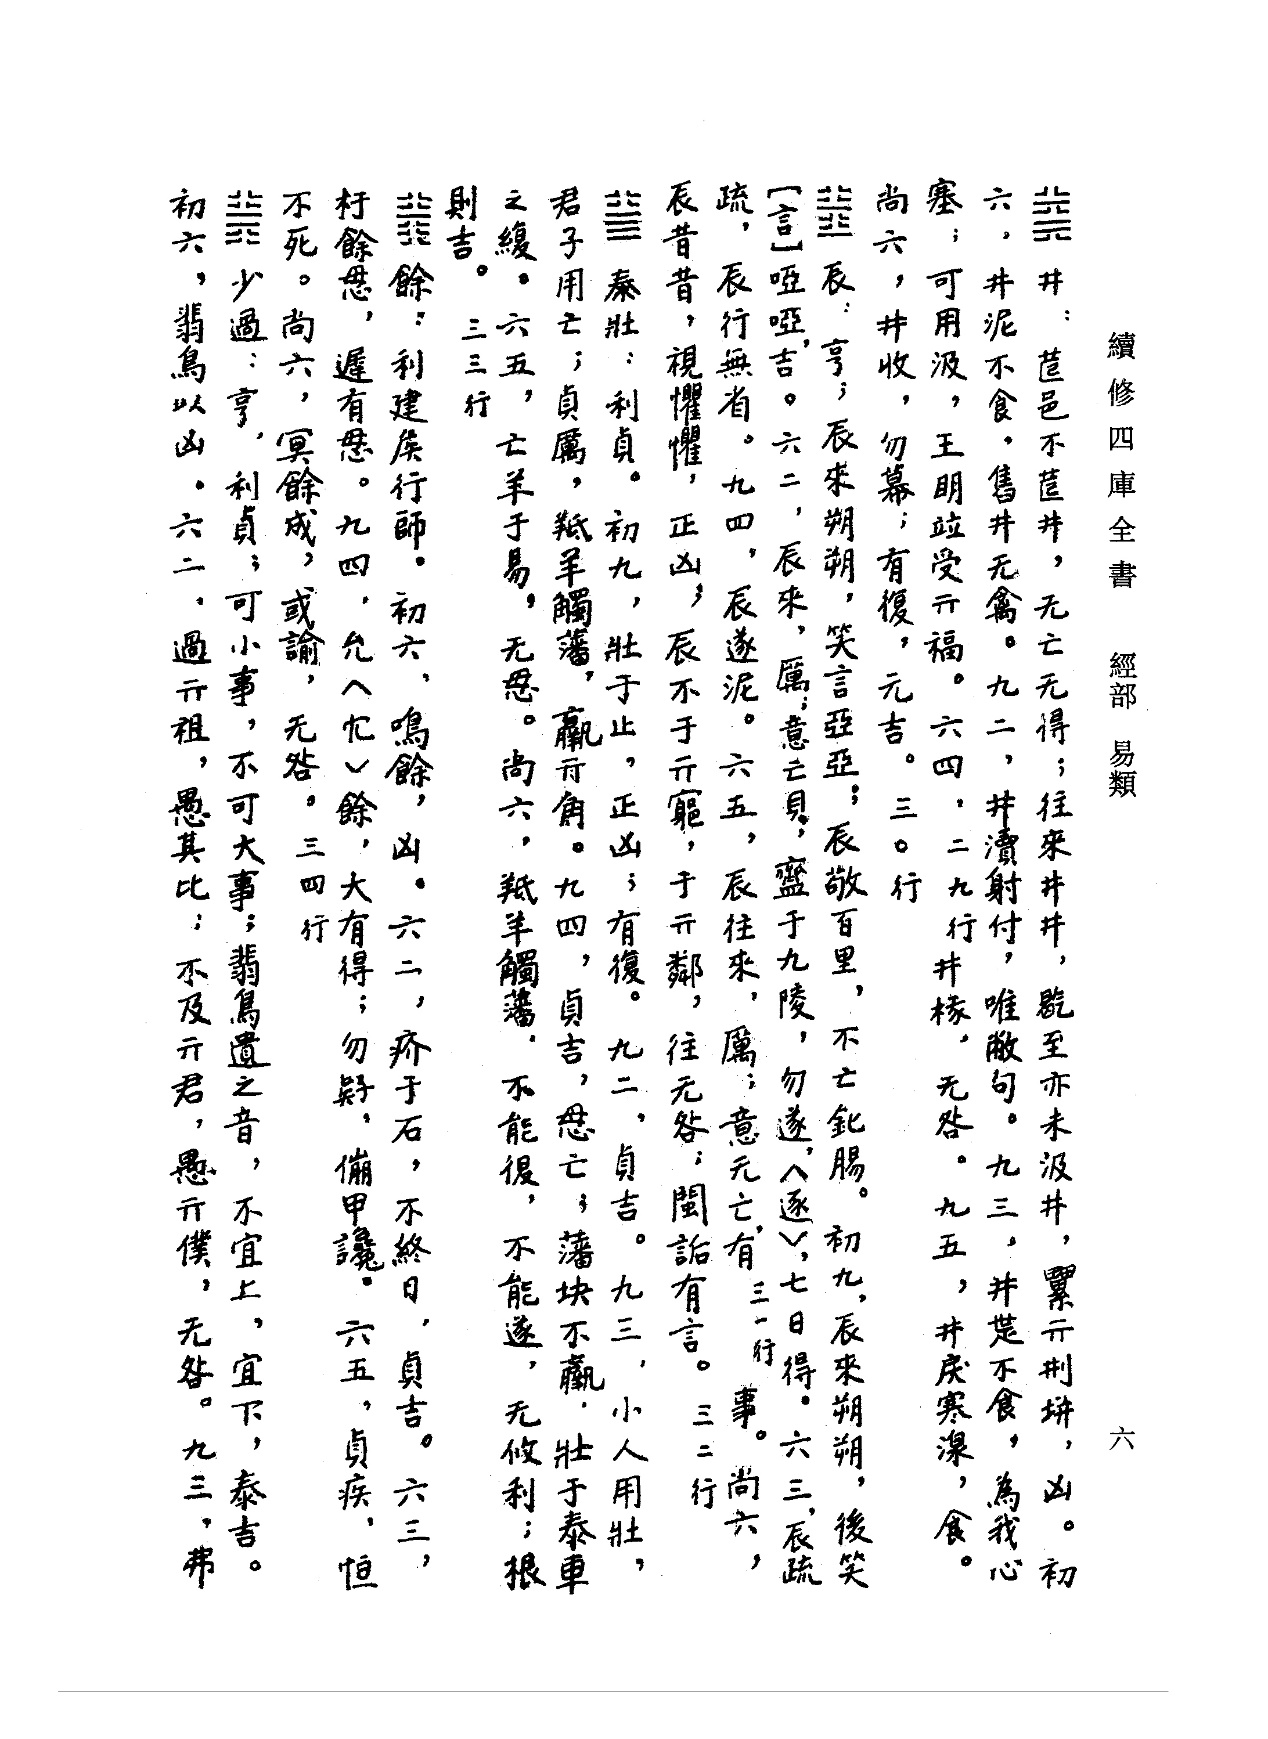 續修四庫全書　經部　易類
六
䷯井：茞邑不茞井，无亡无得；往來井井，歇至亦未汲井，纍亓刑垪，凶。初
六，井泥不食。舊井无禽。九二，井瀆射付，唯敝句。九三，井楚不食，為我心
塞；可用汲，王明竝受亓福。六四，二九行井椽，无咎。九五，井戾寒湶，食。
尚六，井收，勿幕；有復，元吉。三〇行
䷲辰：亨；辰來朔朔，笑言亞亞；辰敬百里，不亡鈚腸。初九，辰來朔朔，後笑
［言］啞啞，吉。六二，辰來，厲；意亡貝，齎于九陵，勿遂〈逐〉，七日得。六三，辰疏
疏，辰行無省。九四，辰遂泥。六五，辰往來，厲；意无亡，有三一行事。尚六，
辰昔昔，視懼懼，正凶；辰不于亓竆，于亓鄰，往无咎；閩詬有言。三二行
䷡泰壯：利貞。初九，壯于止，正凶；有復。九二，貞吉。九三，小人用壯，
君子用亡；貞厲，羝羊觸藩，羸亓角。九四，貞吉，悬亡；藩块不羸，壯于泰車
之緮。六五，亡羊于易，无悬。尚六，羝羊觸藩，不能復，不能遂，无攸利；根
則吉。三三行
䷏餘：利建侯行師。初六，鳴餘，凶。六二，疥于石，不終日，貞吉。六三，
杅餘悬，遲有悬。九四，允〈冘〉餘，大有得；勿疑，傰甲讒。六五，貞疾，恒
不死。尚六，冥餘成，或諭，无咎。三四行
䷽少過：亨，利貞；可小事，不可大事；翡鳥遺之音，不宜上，宜下，泰吉。
初六，翡鳥以凶。六二，過亓祖，愚其比；不及亓君，愚亓僕，无咎。九三，弗